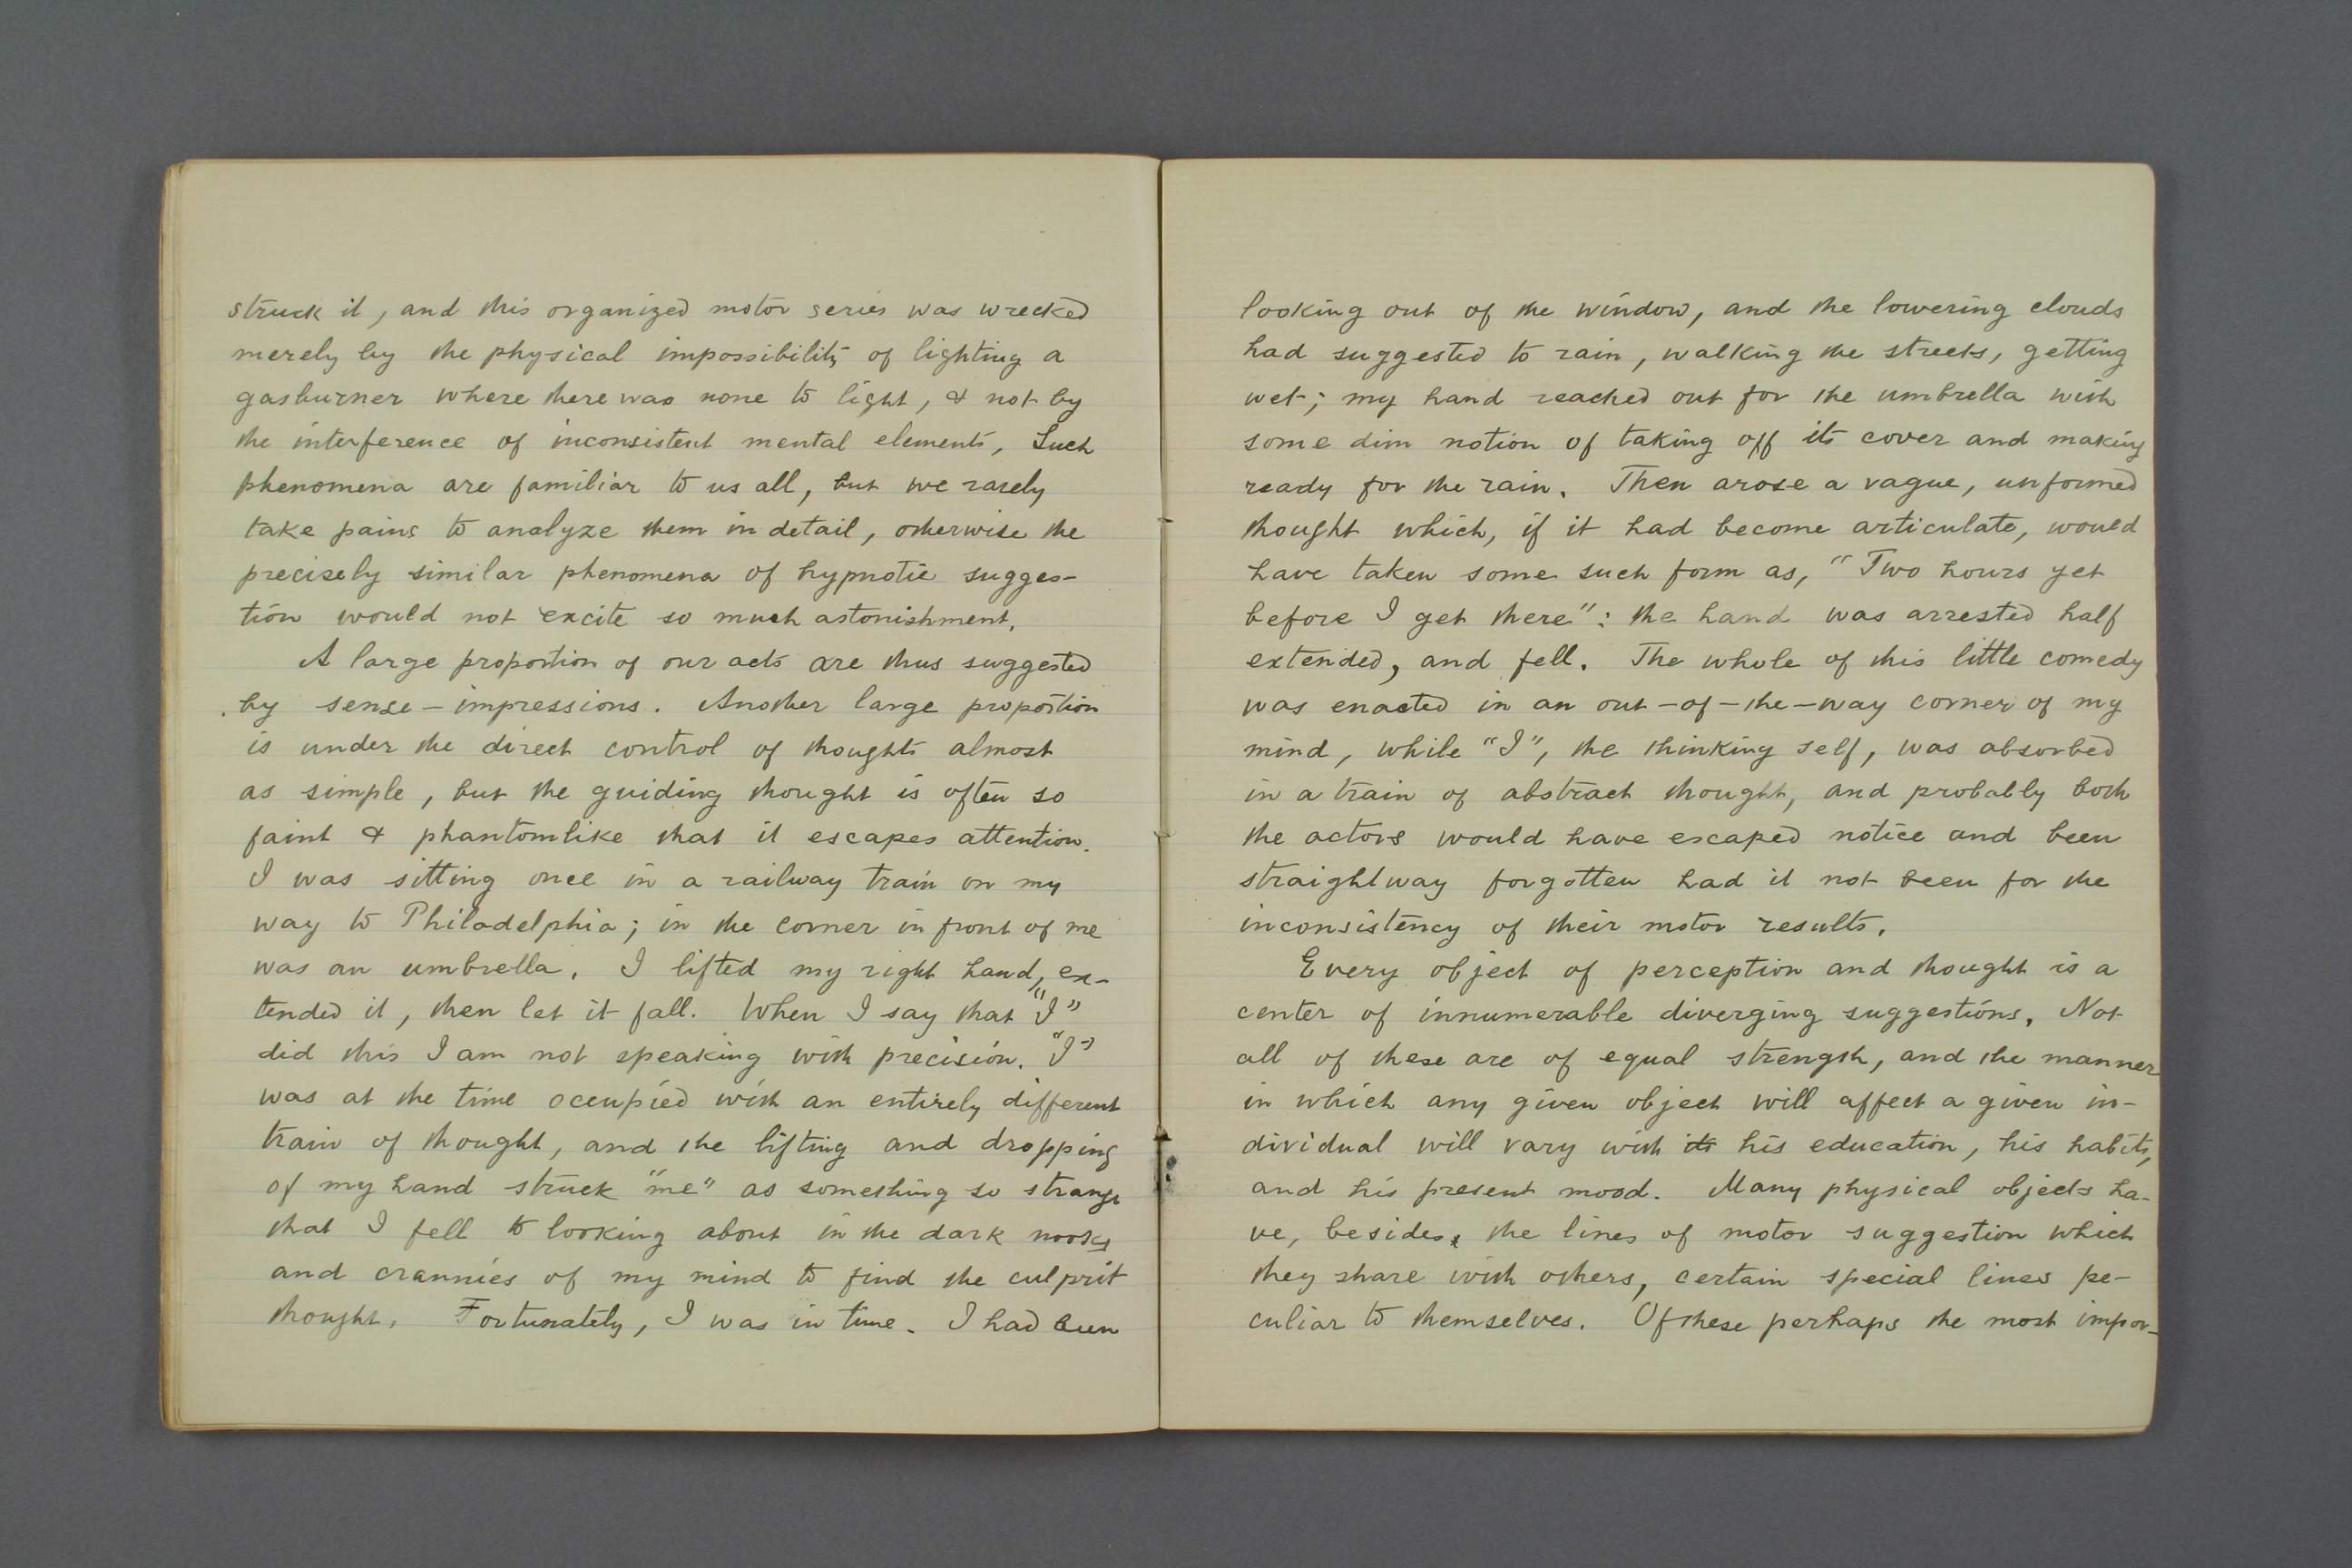 struck it, and this organized motor series was wrecked
merely by the physical impossibility of lighting a
gasburner where there was none to light, & not by
the interference of inconsistent mental elements. Such
phenomena are familiar to us all, but we rarely
take pains to analyze them in detail, otherwise the
precisely similar phenomena of hypnotic sugges-
tion would not excite so much astonishment.
A large proportion of our acts are thus suggested
by sense-impressions. Another large proportion
is under the direct control of thoughts almost
as simple, but the guiding thought is often so
faint & phantomlike that it escapes attention.
I was sitting once in a railway train on my
way to Philadelphia; in the corner in front of me
was an umbrella. I lifted my right hand, ex-
tended it, then let it fall. When I say that "I"
did this I am not speaking with precision. "I"
was at the time occupied with an entirely different
train of thought, and the lifting and dropping
of my hand struck "me" as something so strange
that I fell to looking about in the dark nooks
and crannies of my mind to find the culprit
thought. Fortunately, I was in time. I had been
looking out of the window, and the lowering clouds
had suggested to rain, walking the streets, getting
wet; my hand reached out for the umbrella with
some dim notion of taking off its cover and making
ready for the rain. Then arose a vague, unformed
thought which, if it had become articulate, would
have taken some such form as, "Two hours yet
before I get there": the hand was arrested half
extended, and fell. The whole of this little comedy
was enacted in an out-of-the-way corner of my
mind, while "I", the thinking self, was absorbed
in a train of abstract thought, and probably both
the actors would have escaped notice and been
straightway forgotten had it not been for the
inconsistency of their motor results.
Every object of perception and thought is a
center of innumerable diverging suggestions. Not
all of these are of equal strength, and the manner
in which any given object will affect a given in-
dividual will vary with its his education, his habits,
and his present mood. Many physical objects ha-
ve, besides, the lines of motor suggestion which
they share with others, certain special lines pe-
culiar to themselves. Of these perhaps the most impor-